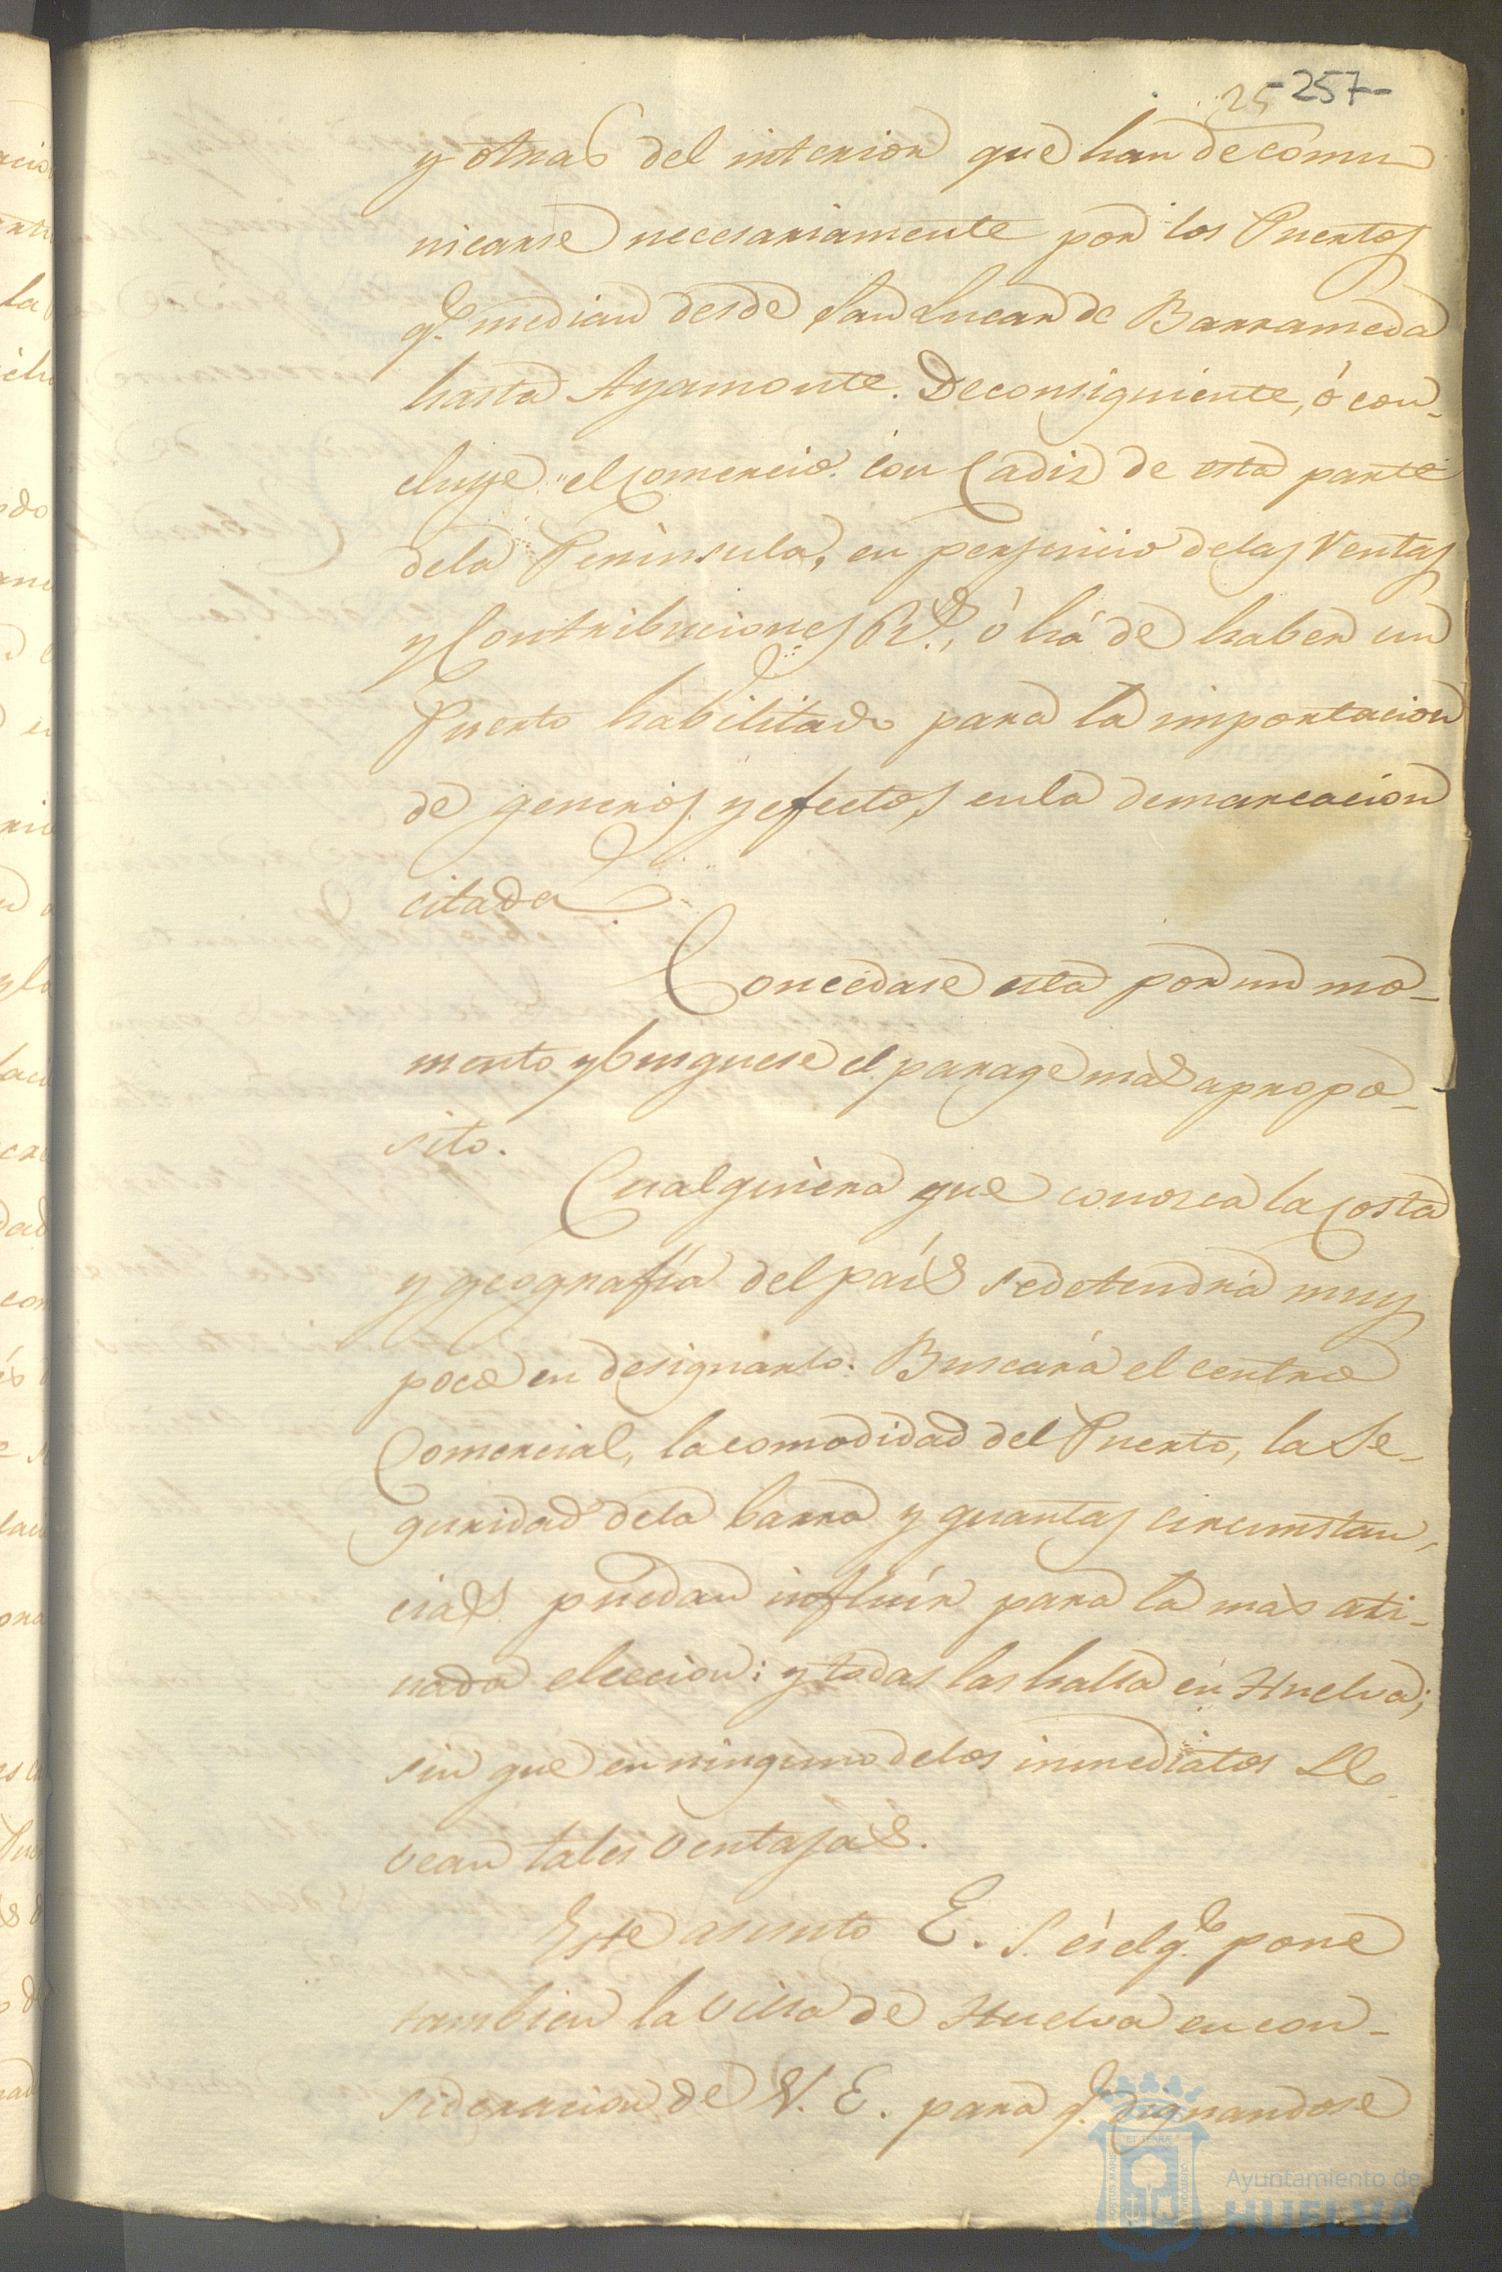 25 -257-
y otras del interior que han de comu
nicarse necesariamente por los Puertos
q.e median desde San Lucar de Barrameda
hasta Ayamonte. De consiguiente, ó con-
cluye el comercio con Cadiz de esta parte
dela Peninsula, en perjuicio delas Ventas
y Contribuciones R.s, ó há de haber un
Puerto habilitado para la importacion
de generos y efectos, enla demarcacion
citada
Concedase esta por un mo-
mento y busquese el parage mas apropo-
sito.
Cualquiera que conosca la Costa
y geografía del país sedetendrá muy
poco en designarlo. Buscará el centro
Comercial, la comodidad del Puerto, la Se-
guridad dela barra y quantas circunstan-
cias puedan influir para la mas ati-
nada eleccion: y todas las halla en Huelva;
sin que en ninguno delos inmediatos se
vean tales ventajas.
Este asunto E. S. és el q.e pone
tambien la Villa de Huelva en con-
sideracion de V. E. para q.e dignandose
Ayuntamiento de
HUELVA